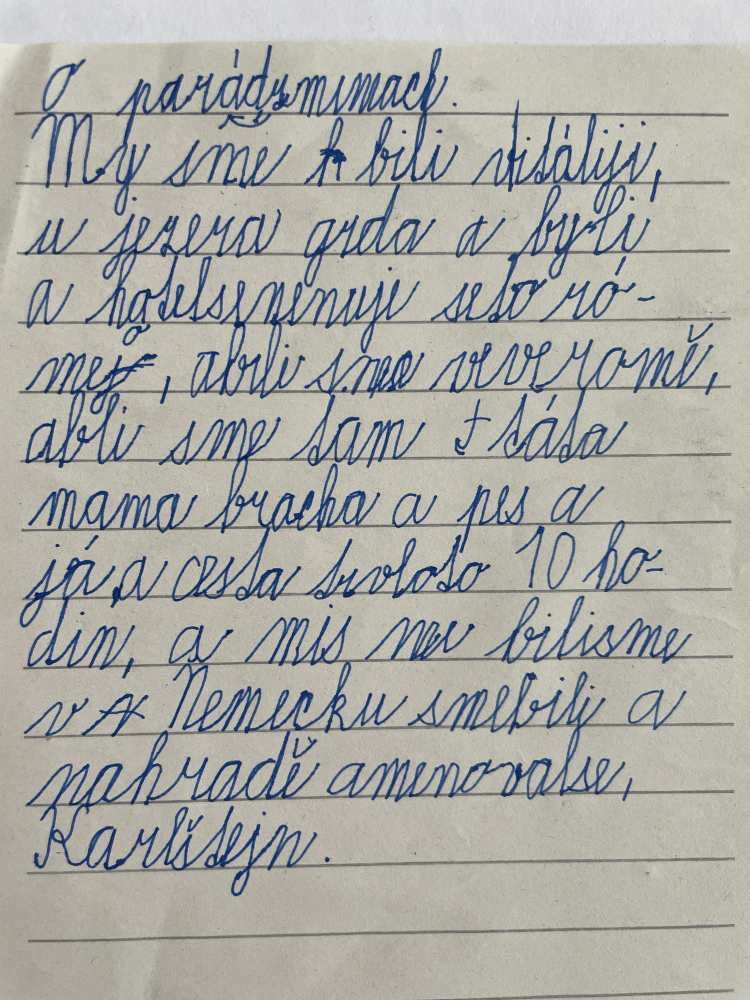 O parádzmimach.
My sme bili vitáliji,
u jezera grda a byli
a hotelsenenuje seto ró-
mejo, abili sme veveromě,
abli sme tam táta
mama bracha a pes a
já, a cesta trvloto 10 ho-
din, a mis bilisme
v Nemecku smebili a
nahradě amenovalse,
Karlštejn.